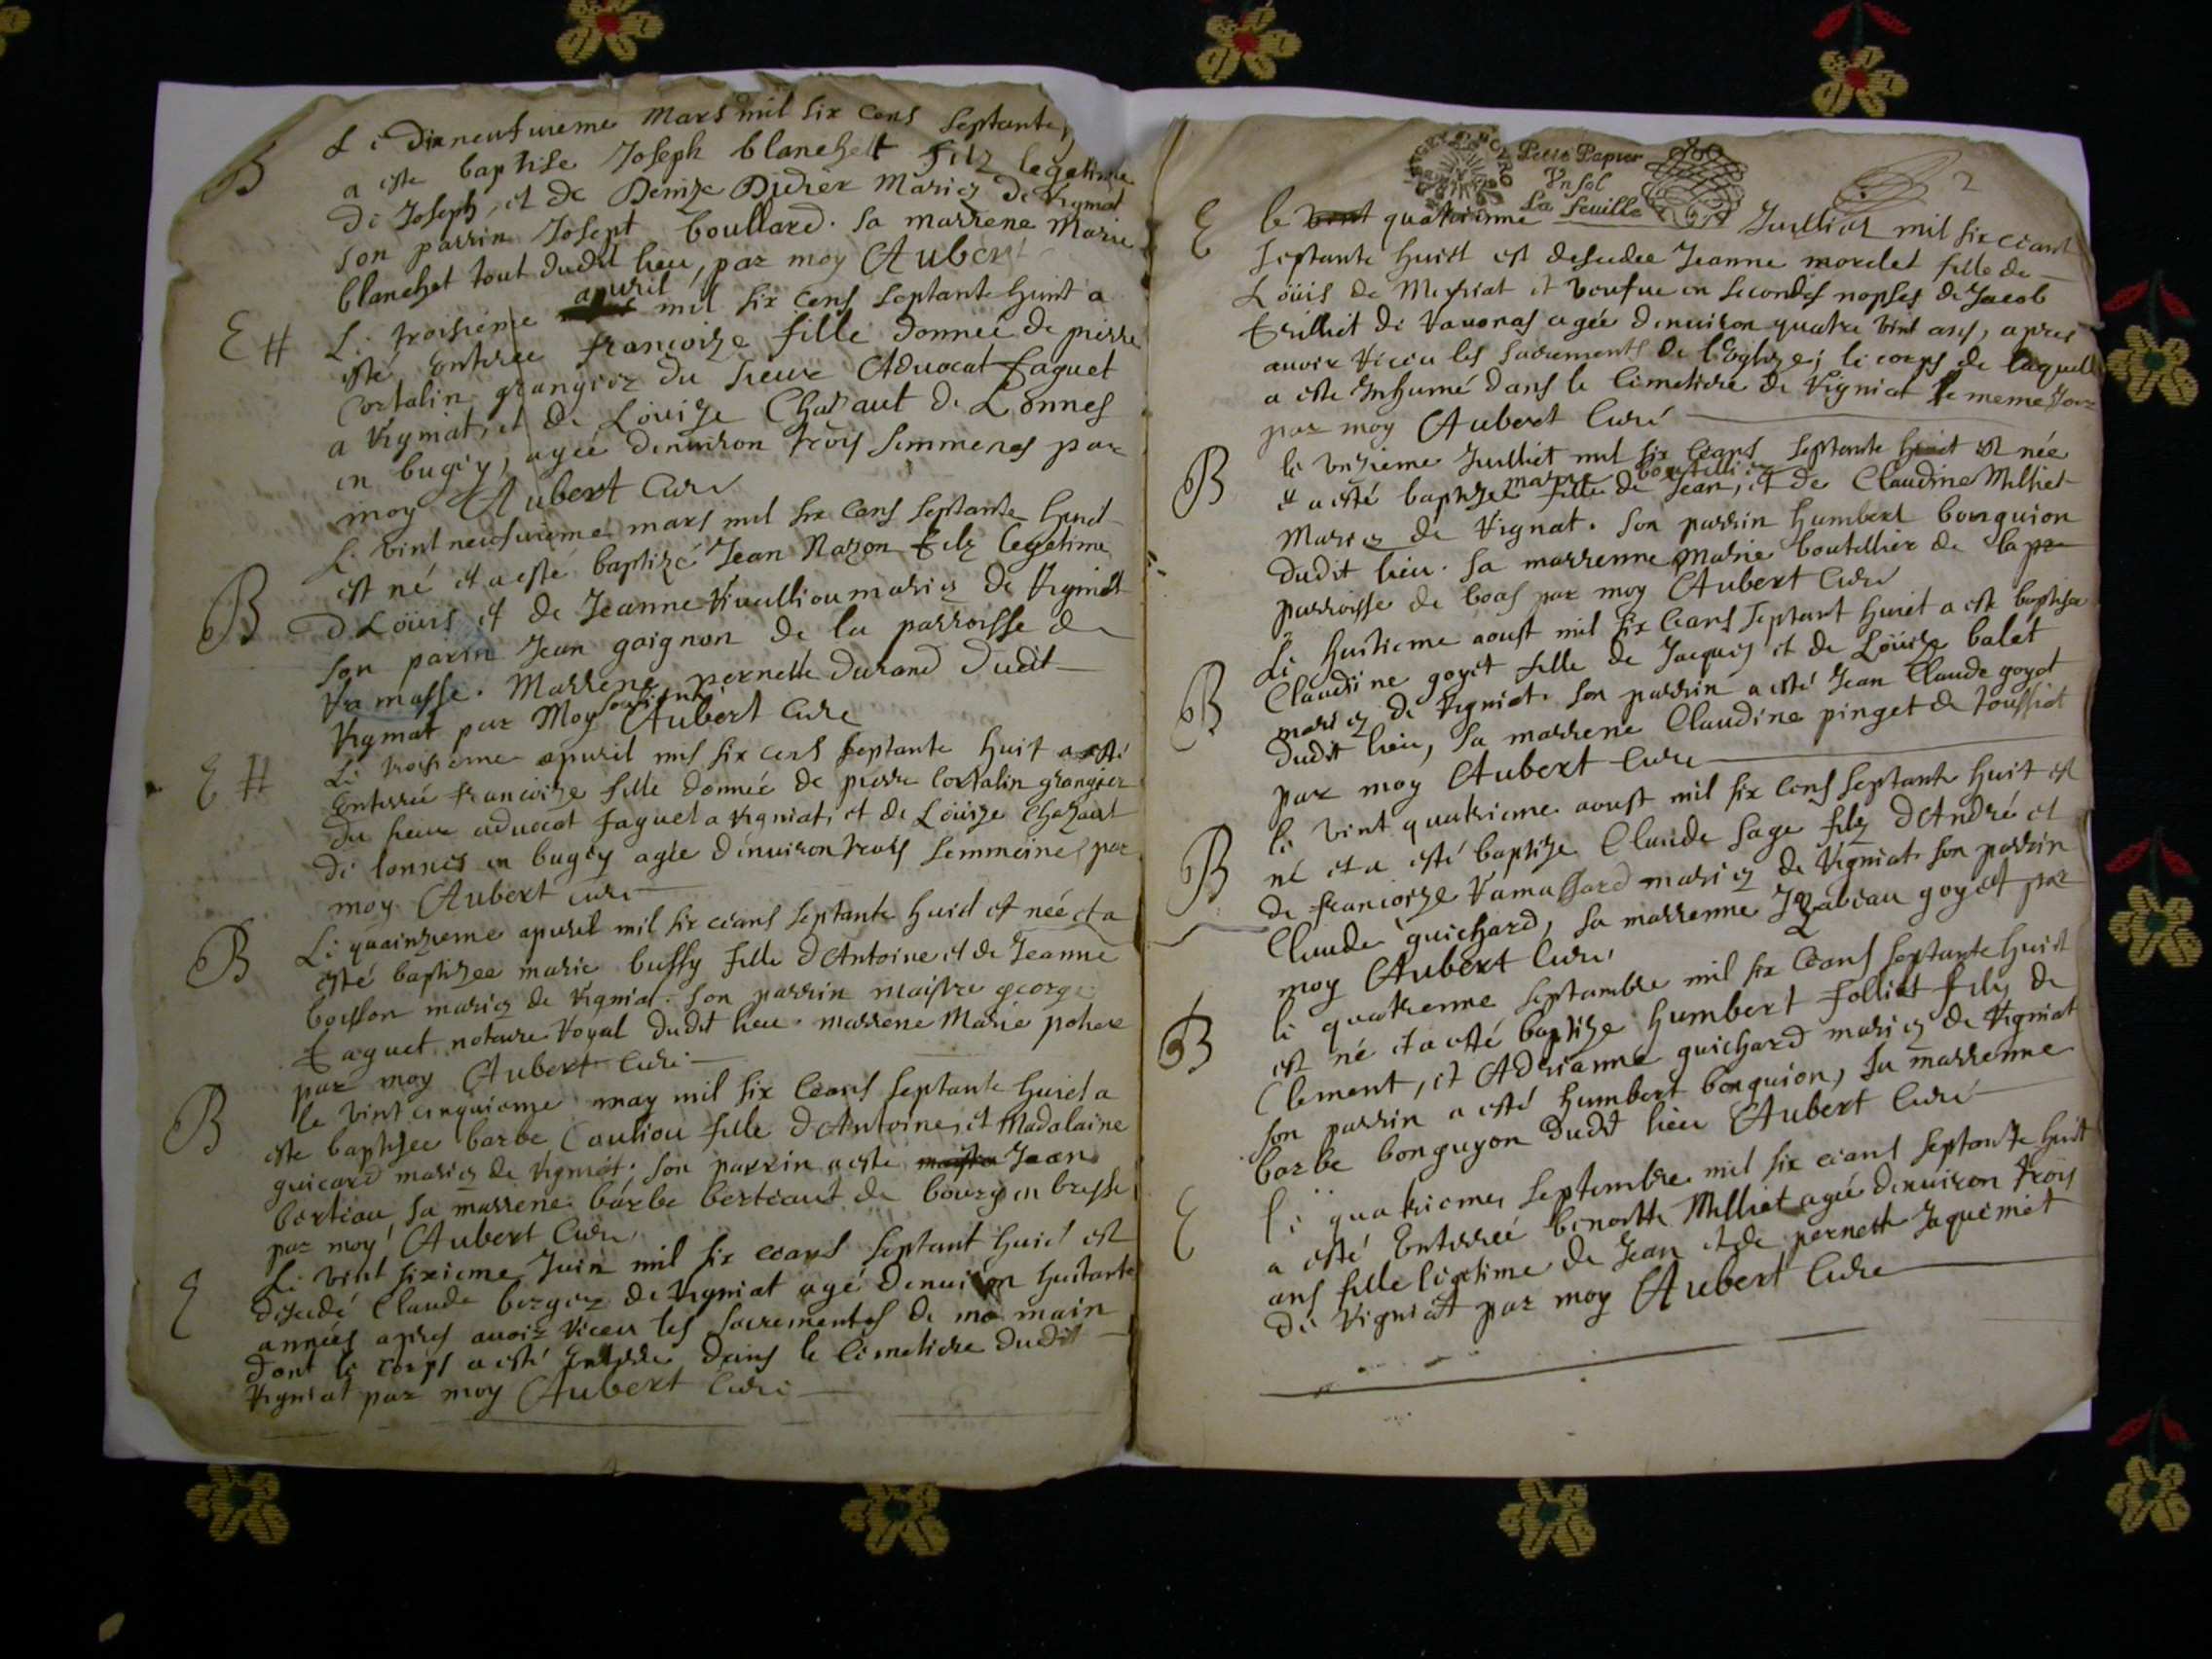 B Le dixneufvieme Mars mil six cens septante
a este baptise Joseph blanchett filz legetime
de Joseph, et de Denize Didier Mariez de Vigniat
son parrin Josept boullard. sa marrene Marie
blanchet tout dudit lieu, par moy Aubert
E # Le troisieme apuril mil six cens septante huit a
esté Enterée francoize fille donnée de pierre
Cortalin grangier du sieur Advocat faguet
a Vigniat, et de Louize Chazaut de Lonnes
en bugey, agée denuiron trois semmenes par
moy Aubert Curé
Le vint neufvieme mars mil six cens septante huit
B est né et a esté baptizé Jean Nazon filz legetime
d Louis et de Jeanne mariez de Vigniat
son parin Jean gaignon de la parroisse de
Marrene pernette durand dudit
Vigniat par Moy soubsigné Aubert Cure
E # Le troisieme apuril mil six cens septante huit a esté
Enterrée francoize fille donnée de pierre Cortalin grangier
du sieur advocat faguet a Vigniat, et de Louize Chazaut
de lonnes en bugey agée d'enuiron trois semmeines par
moy Aubert curé
B Le quainzieme apuril mil six ceans septante huict et née et a
esté baptizee marie bussy fille d'Antoine et de Jeanne
boisson mariez de Vigniat. son parrin maistre george
faguet notaire Royal dudit lieu. marrene Marie
par moy Aubert Curé
B le vint cinquieme may mil six ceans septante huict a
este baptizee barbe Cauliou fille d'Antoine, et Madalaine
guicard mariez de Vigniat. son parrin a este Jean
berteau, sa marrene barbe berteaut de bourg en bresse
par moy Aubert Curé
E Le vint sixieme Juin mil six ceans septant huict est
decedé Claude bergier de Vigniat agé d'enuiron huitante
années apres auoir Receu les sacrements de ma main
dont le corps a esté Enterre dans le cimetiere dudit
Vigniat par moy Aubert Curé
Petit Papier
Un sol
La feuille
2
E le quatorieme Juilliet mil six ceant
septante huict est decedee Jeanne morelet fille de
Loüis de Meyriat et veufue en secondes nopses de Jacob
de Rauonas agée d'enuiron quatre vint ans, apres
auoir Receu les sacrements de l'Eglize; le corps de laquelle
a este Inhumé dans le cimetiere de Vigniat le meme Jour
par moy Aubert Curé
B le unzieme Juilliet mil six ceans septante huict est née
et a esté baptizee marie fille de Jean boutellier, et de Claudine Milliet
Mariez de Vigniat. son parrin humbert bonguion
dudit lieu. sa marrenne Marie boutellier de la
parroisse de boas par moy Aubert Curé
B Le huitieme aoust mil six ceans septant huict a este baptisee
Claudine goyet fille de Jacques et de Loüize balet
mariez de Vigniat. son parrin a esté Jean Claude goyet
dudit lieu, sa marrene Claudine pinget de toussiat
par moy Aubert Curé
B le vint quatrieme aoust mil six cens septante huit est
né et a esté baptize Claude sage filz d'André et
de francoize Ramassard mariez de Vigniat son parrin
Claude guichard, sa marrenne Izabeau goyet par
moy Aubert Curé
B le quatrieme septambre mil six ceans septante huict
est né et a esté baptize humbert folliet filz de
Clement, et Adrianne guichard mariez de Vigniat
son parrin a esté humbert bonguion, sa marrenne
barbe bonguyon dudit lieu Aubert Curé
E le quatrieme septembre mil six ceans septante huit
a esté Enterrée benoitte Milliet agée denuiron trois
ans fille legetime de Jean et de pernette Jaquemet
de Vigniat par moy Aubert Cure